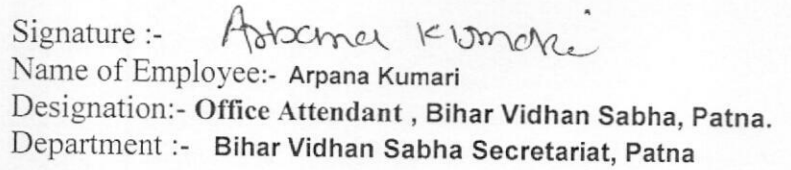 Signature :- Arpana Kumari
Name of Employee:- Arpana Kumari
Designation:- Office Attendant , Bihar Vidhan Sabha, Patna.
Department :- Bihar Vidhan Sabha Secretariat, Patna